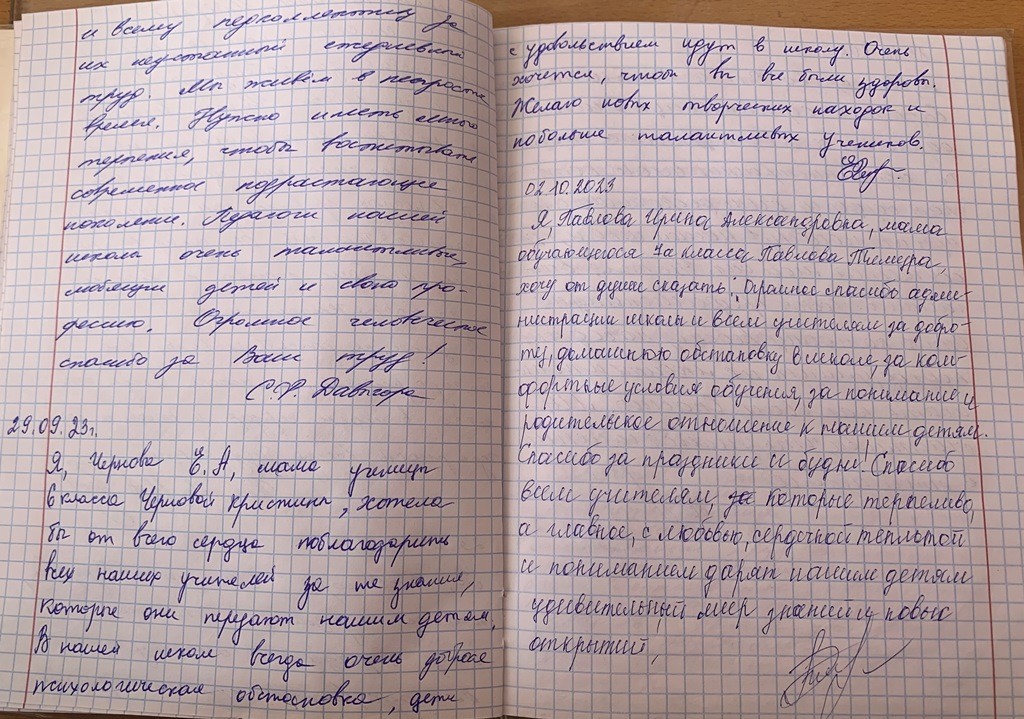 и всему педколлективу за
их неустанный ежедневный
труд. Мы живём в непростое
время. Нужно иметь много
терпения, чтобы воспитывать
современное подрастающее
поколение. Педагоги нашей
школы очень талантливые,
любящие детей и свою про-
фессию. Огромное человеческое
спасибо за Ваш труд!
С.Ф.
29.09.23г.
Я, Чернова Е.А, мама ученицы
6 класса Черновой Кристины, хотела
бы от всего сердца поблагодарить
всех наших учителей за те знания,
которые они передают нашим детям.
В нашей школе всегда очень доброе
психологическая обстановка, дети
с удовольствием идут в школу. Очень
хочется, чтобы вы все были здоровы.
Желаю новых творческих находок и
побольше талантливых учеников.
02.10.2023
Я, Павлова Ирина Александровна, мама
обучающегося 7а класса Павлова Тимура,
хочу от души сказать: Огромное спасибо адми-
нистрации школы и всем учителям за добро-
ту, домашнюю обстановку в школе, за ком-
фортные условия обучения, за понимание и
родительское отношение к нашим детям.
Спасибо за праздники и будни! Спасибо
всем учителям, которые терпеливо,
а главное, с любовью, сердечной теплотой
и пониманием дарят нашим детям
удивительный мир знаний и новых
открытий,